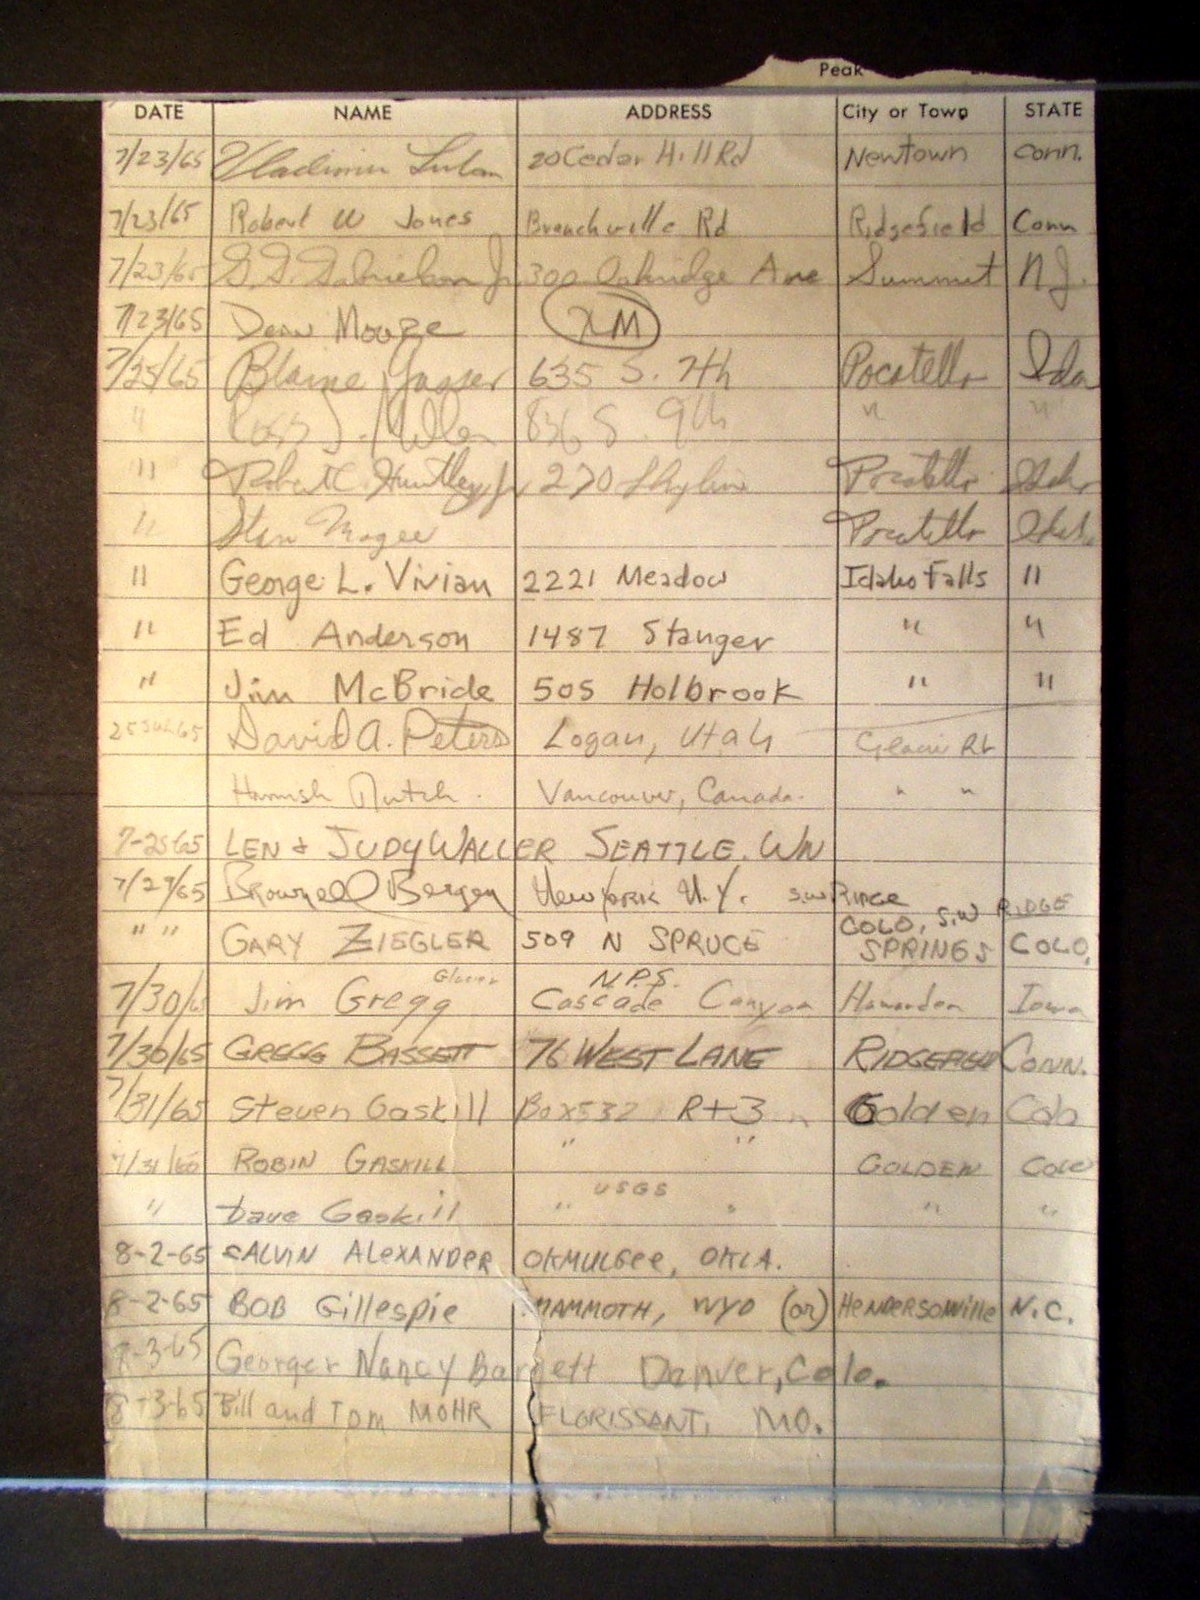 Peak
DATE NAME ADDRESS City or Town STATE
7/23/65 Vladimir 20 Cedar Hill Rd Newtown Conn.
7/23/65 Robert W Jones Branchville Rd Ridgefield Conn
7/23/65 Jr 300 Oakridge Ave Summit N.J.
7/23/65 Dean Moore XM
7/25/65 Blaine Gasser 635 S. 7th Pocatello Ida
" Ross J. 836 S. 9th " "
" Robert C. Huntley Jr 270 Skyline Pocatello Idaho
" Stan Magee Pocatello Idaho
" George L. Vivian 2221 Meadow Idaho Falls "
" Ed Anderson 1487 Stanger " "
" Jim McBride 505 Holbrook " "
25 Jul 65 David A. Peters Logan, Utah Rt
Hamish Mutch. Vancouver, Canada. " "
7-25-65 LEN & JUDY WALLER SEATTLE. WN
7/29/65 Brownell Bergen New York N.Y. S.W RIDGE
" " GARY ZIEGLER 509 N SPRUCE COLO, SPRINGS COLO. S.W RIDGE
7/30/65 Jim Gregg N.P.S. Cascade Canyon Hawarden Iowa
7/30/65 GREGG BASSETT 76 WEST LANE RIDGEFIELD CONN.
7/31/65 Steven Gaskill Box 532 Rt 3 Golden Colo
7/31/65 ROBIN GASKILL " " GOLDEN Colo
" Dave Gaskill " USGS " " "
8-2-65 CALVIN ALEXANDER OKMULGEE, OKLA.
8-2-65 BOB Gillespie MAMMOTH, WYO (or) HENDERSONVILLE N.C.
8-3-65 George & Nancy Barnett Danver, Colo.
8-3-65 Bill and Tom MOHR FLORISSANT, MO.